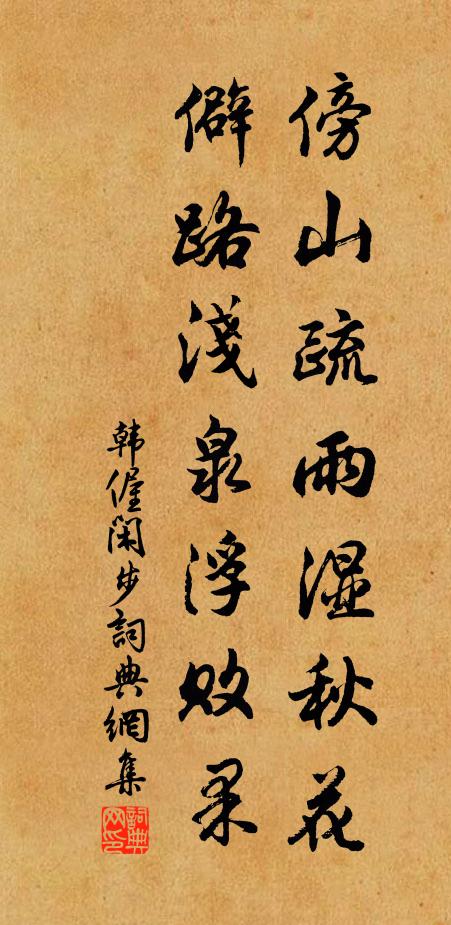 傍山疏雨湿秋花
僻路淺泉浮败果
韩偓闲步詞典網集
詞典网印